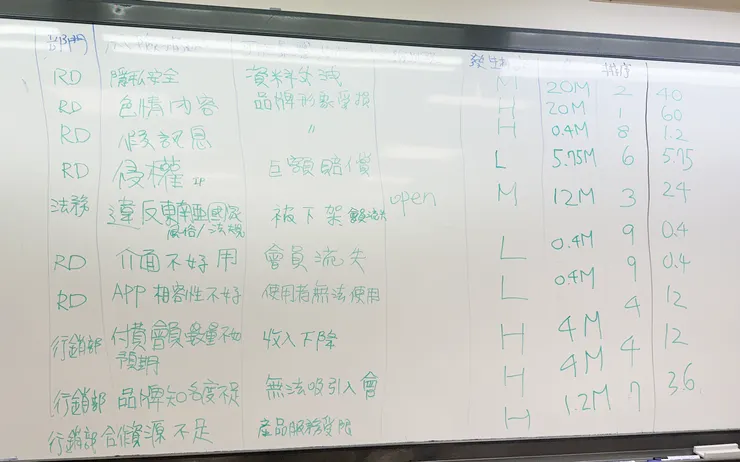 部門 發生 排序
RD 隱私安全 資料外洩 M 20M 2 40
RD 色情內容 品牌形象受損 H 20M 1 60
RD 假訊息 〃 H 0.4M 8 1.2
RD 侵權 IP 巨額賠償 L 5.75M 6 5.75
法務 違反東南亞國家 被下架 open M 12M 3 24
風俗/法規
RD 介面不好用 會員流失 L 0.4M 9 0.4
RD APP相容性不好 使用者無法使用 L 0.4M 9 0.4
行銷部 付費會員數量不如 收入下降 H 4M 4 12
預期
行銷部 品牌知名度不足 無法吸引入會 H 4M 4 12
行銷部 合作資源不足 產品服務受限 H 1.2M 7 3.6